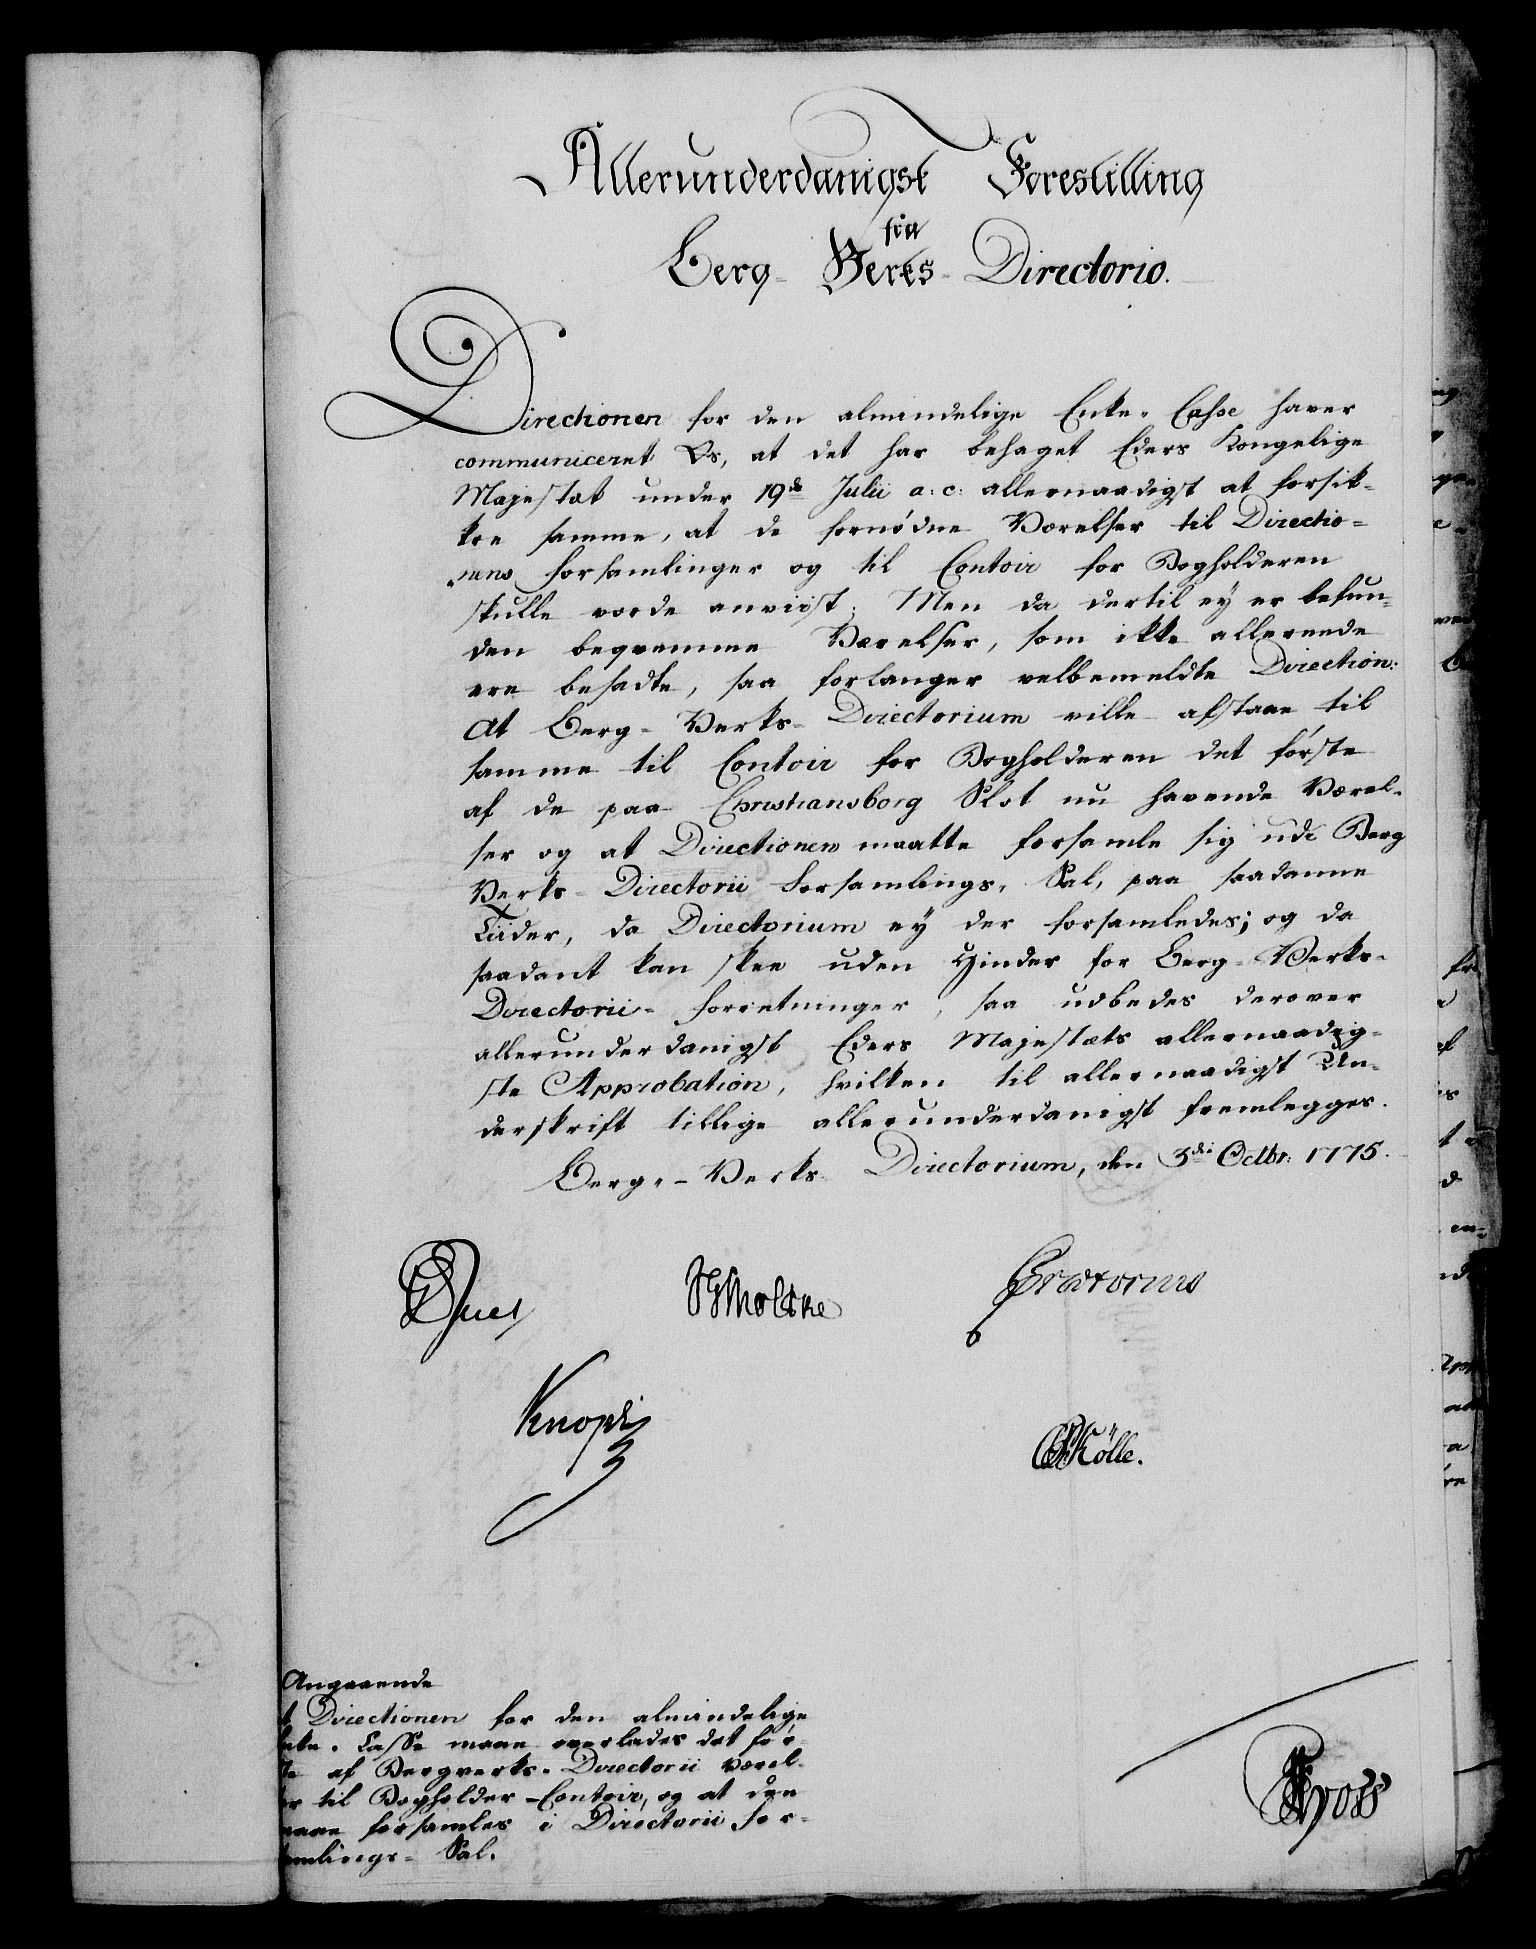 Allerunderdanigst Forestilling
fra
Berg-Verks-Directorio.
Directionen for den almindelige Enke-Casse haver
communiceret Os, at det har behaget Eders Kongelige
Majestæt under 19de Julii a: c: allernaadigst at forsik-
kre samme, at de fornødne Værelser til Directio-
nens forsamlinger og til Contoir for Bogholderen
skulle vorde anviist; Men da dertil ey er befun-
den beqvemme Værelser, som ikke allereede
ere besadte, saa forlanger velbemeldte Direction:
At Berg-Verks-Directorium ville afstaae til
samme til Contoir for Bogholderen det første
af de paa Christiansborg Slot nu havende Værel-
ser og at Directionen maatte forsamle sig udi Berg
Verks-Directorii Forsamlings-Sal, paa saadanne
Tiider, da Directorium ey der forsamledes; og da
saadant kan skee uden Hinder for Berg-Verks-
Directorii-forretninger, saa udbedes derover
allerunderdanigst Eders Majestæts allernaadig-
ste Approbation, hvilken til allernaadigst Un-
derskrift tillige allerunderdanigst fremlegges.
Berg-Verks Directorium, den 3die Octbr: 1775.
Juel Moltke Prætorius
Knoph Kölle.
Angaaende
t Directionen for den almindelige
nke-Casse maae overlades det før-
te af Bergverks-Directorii Værel-
er til Bogholder-Contoir, og at den
maae forsamles i Directorii For-
amlings-Sal.